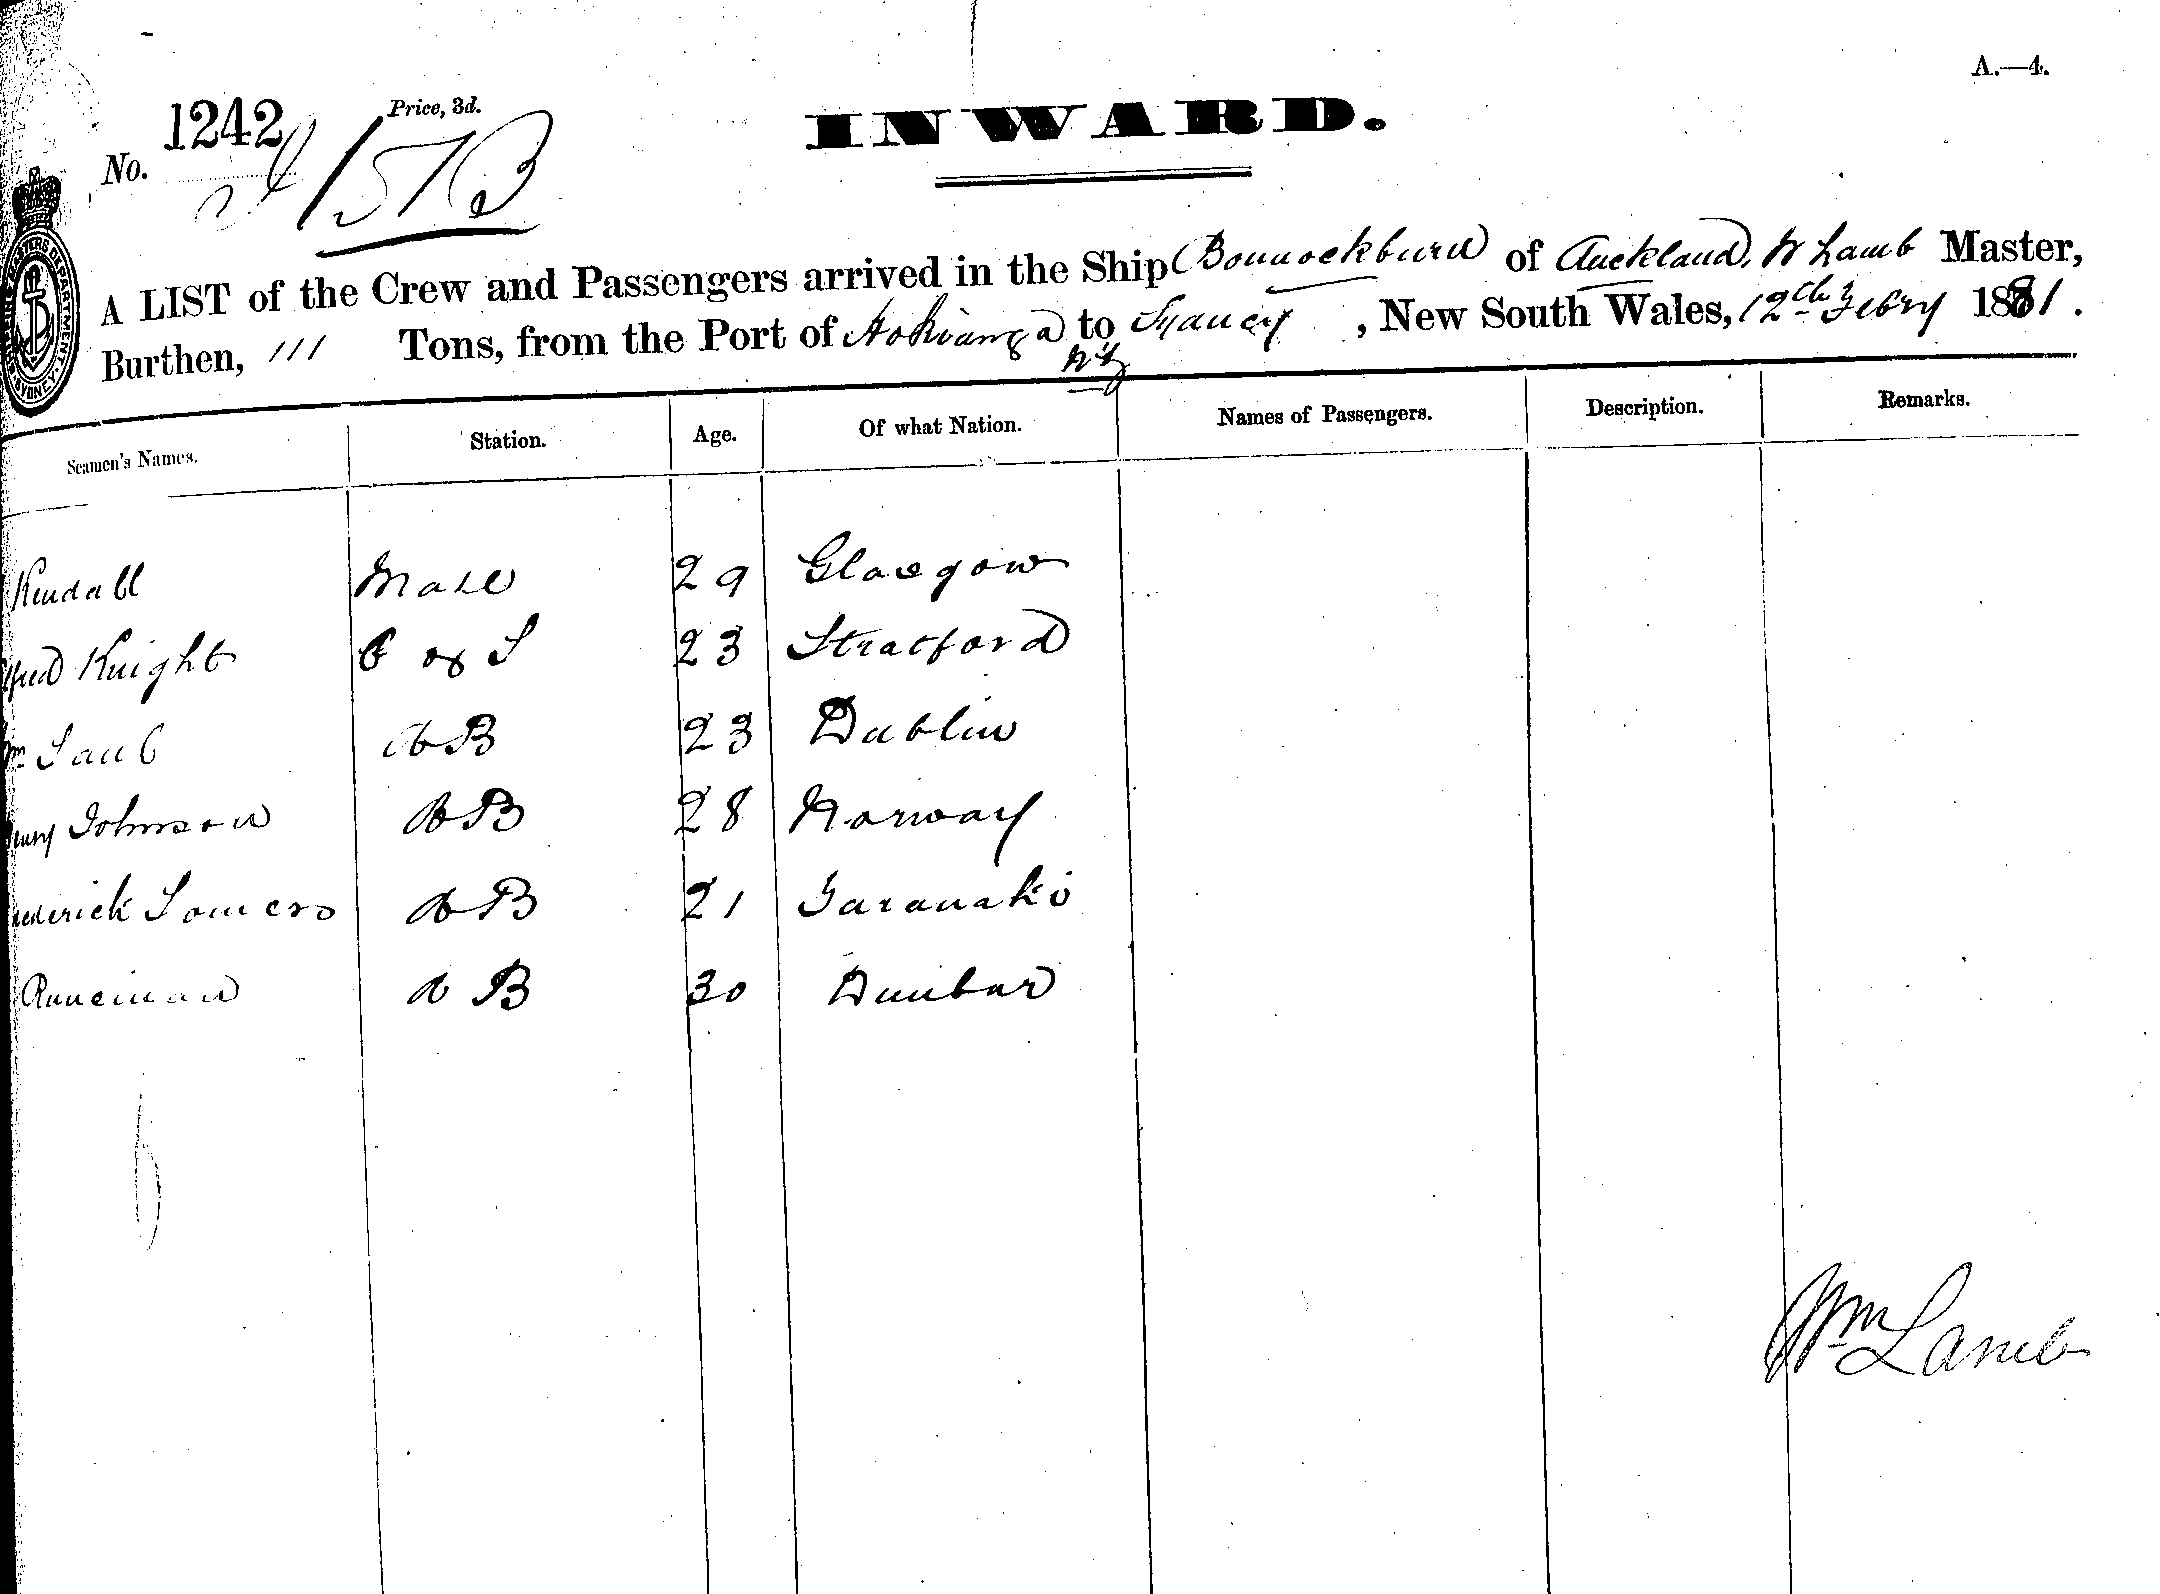 A.—4.
Price, 3d.
No. 1242
INWARD.
A LIST of the Crew and Passengers arrived in the Ship Bannockburn of Auckland, W Lamb Master,
Burthen, 111 Tons, from the Port of Hokianga to Sydney, New South Wales, 12th Febry 1881.
NZ
Seamen's Names. Station. Age. Of what Nation. Names of Passengers. Description. Remarks.
Kendall Mate 29 Glasgow
lfred Knight C & S 23 Stratford
Wm 23 Dublin AB
enry Johnson AB 28 Norway
rederick Somers AB 21 Taranaki
Runciman AB 30 Dunbar
6
Wm Lamb